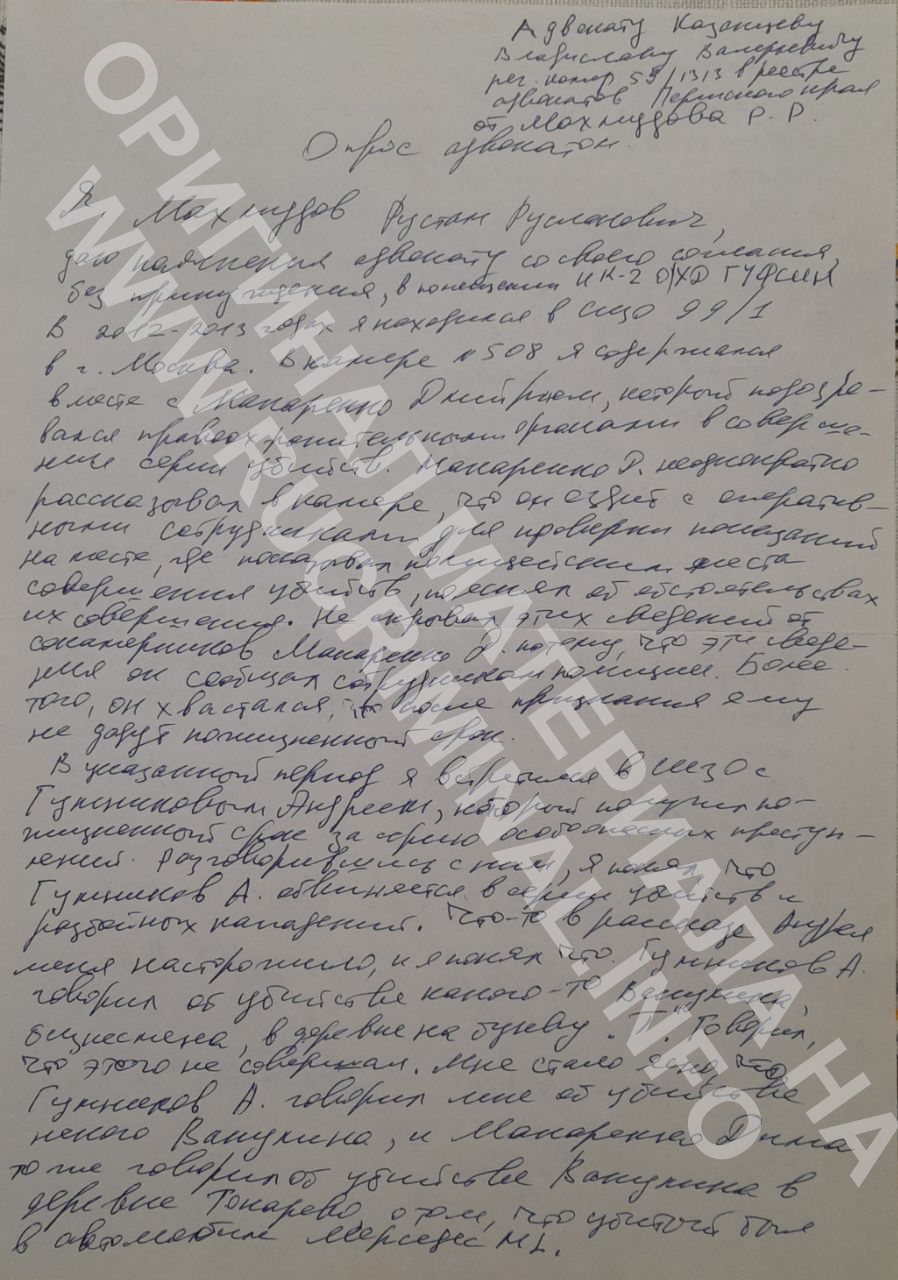 Адвокату Казанцеву
Владиславу Валерьевичу
рег. номер 59/1313 в реестре
адвокатов Пермского края
от Махмудова Р. Р.
Опрос адвокатом.
Я, Махмудов Рустам Русланович,
даю пояснения адвокату со своего согласия,
без принуждения, в помещении ИК-2 ОУХД ГУФСИН
В 2012-2013 годах я находился в СИЗО 99/1
в г. Москва. В камере №508 я содержался
вместе с Макаренко Дмитрием, который подозре-
вался правоохранительными органами в соверше-
нии серии убийств. Макаренко Д. неоднократно
рассказывал в камере, что он ездит с оператив-
ными сотрудниками для проверки показаний
на месте, где показывал полицейским места
совершения убийств, пояснял об обстоятельствах
их совершения. Не скрывал этих сведений от
сокамерников Макаренко Д. потому, что эти сведе-
ния он сообщал сотрудникам полиции. Более
того, он хвастался, что после признания ему
не дадут пожизненный срок.
В указанный период я встретился в СИЗО с
Гумниковым Андреем, который получил по-
жизненный срок за серию особо опасных преступ-
лений. Разговорившись с ним, я понял, что
Гумников А. обвиняется в серии убийств и
разбойных нападений. Что-то в рассказе Андрея
меня насторожило, и я понял что Гумников А.
говорил об убийстве какого-то Ванукина,
бизнесмена, в деревне на букву "Т". Говорил,
что этого не совершал. Мне стало ясно, что
Гумников А. говорил мне об убийстве
некого Ванукина, и Макаренко Дима
тоже говорил об убийстве Ванукина в
деревне Токарево, о том, что убитый был
в автомобиле Мерседес ML.
ОРИГИНАЛ МАТЕРИАЛА НА
WWW.RUSCRIMINAL.INFO